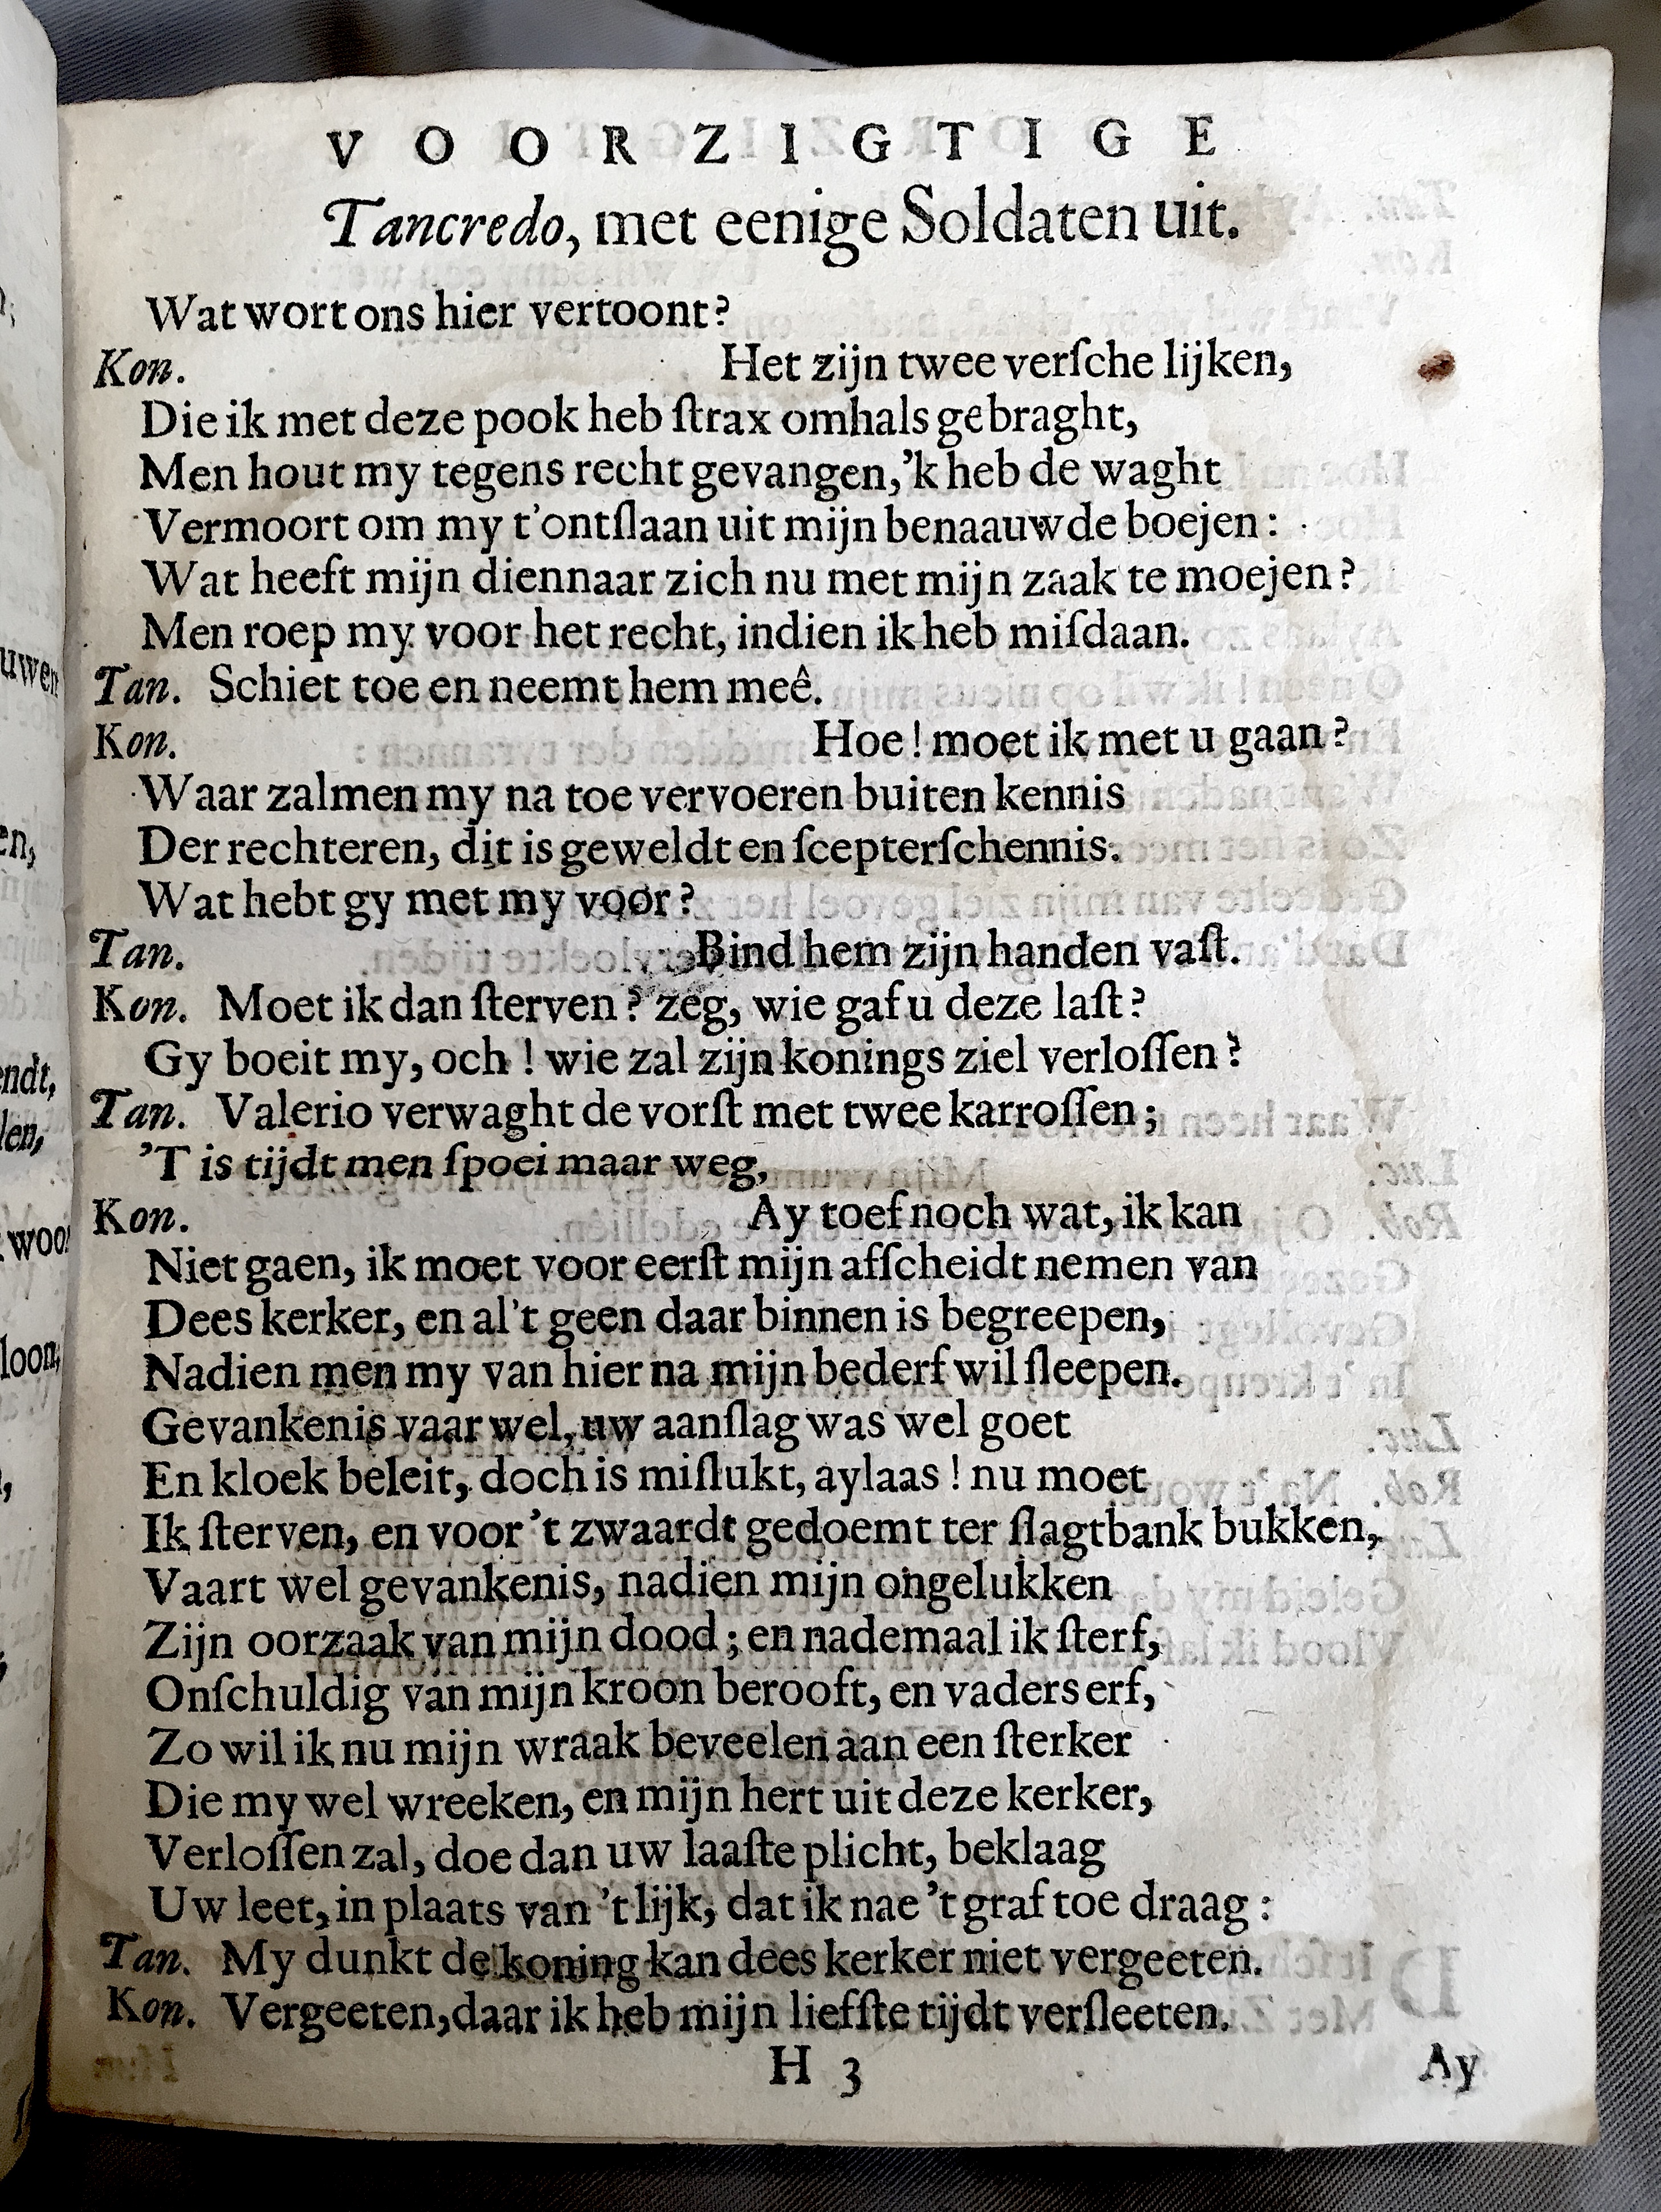 VOORZIGTIGE
Tancredo, met eenige Soldaten uit.
Wat wort ons hier vertoont?
Kon. Het zijn twee verſche lijken,
Die ik met deze pook heb ſtrax omhals gebraght,
Men hout my tegens recht gevangen, 'k heb de waght
Vermoort om my t'ontſlaan uit mijn benaauwde boejen:
Wat heeft mijn diennaar zich nu met mijn zaak te moejen?
Men roep my voor het recht, indien ik heb miſdaan.
Tan. Schiet toe en neemt hem meê.
Kon. Hoe! moet ik met u gaan?
Waar zalmen my na toe vervoeren buiten kennis
Der rechteren, dit is geweldt en ſcepterſchennis.
Wat hebt gy met my voor?
Tan. Bind hem zijn handen vaſt.
Kon. Moet ik dan ſterven? zeg, wie gaf u deze laſt?
Gy boeit my, och! wie zal zijn konings ziel verloſſen?
Tan. Valerio verwaght de vorſt met twee karroſſen;
'T is tijdt men ſpoei maar weg,
Kon. Ay toef noch wat, ik kan
Niet gaen, ik moet voor eerſt mijn afſcheidt nemen van
Dees kerker, en al 't geen daar binnen is begreepen,
Nadien men my van hier na mijn bederf wil ſleepen.
Gevankenis vaar wel, uw aanſlag was wel goet
En kloek beleit, doch is miſlukt, aylaas! nu moet
Ik ſterven, en voor 't zwaardt gedoemt ter ſlagtbank bukken,
Vaart wel gevankenis, nadien mijn ongelukken
Zijn oorzaak van mijn dood; en nademaal ik ſterf,
Onſchuldig van mijn kroon berooft, en vaders erf,
Zo wil ik nu mijn wraak beveelen aan een ſterker
Die my wel wreeken, en mijn hert uit deze kerker,
Verloſſen zal, doe dan uw laaſte plicht, beklaag
Uw leet, in plaats van 't lijk, dat ik nae 't graf toe draag:
Tan. My dunkt de koning kan dees kerker niet vergeeten.
Kon. Vergeeten, daar ik heb mijn liefſte tijdt verſleeten.
H 3
Ay